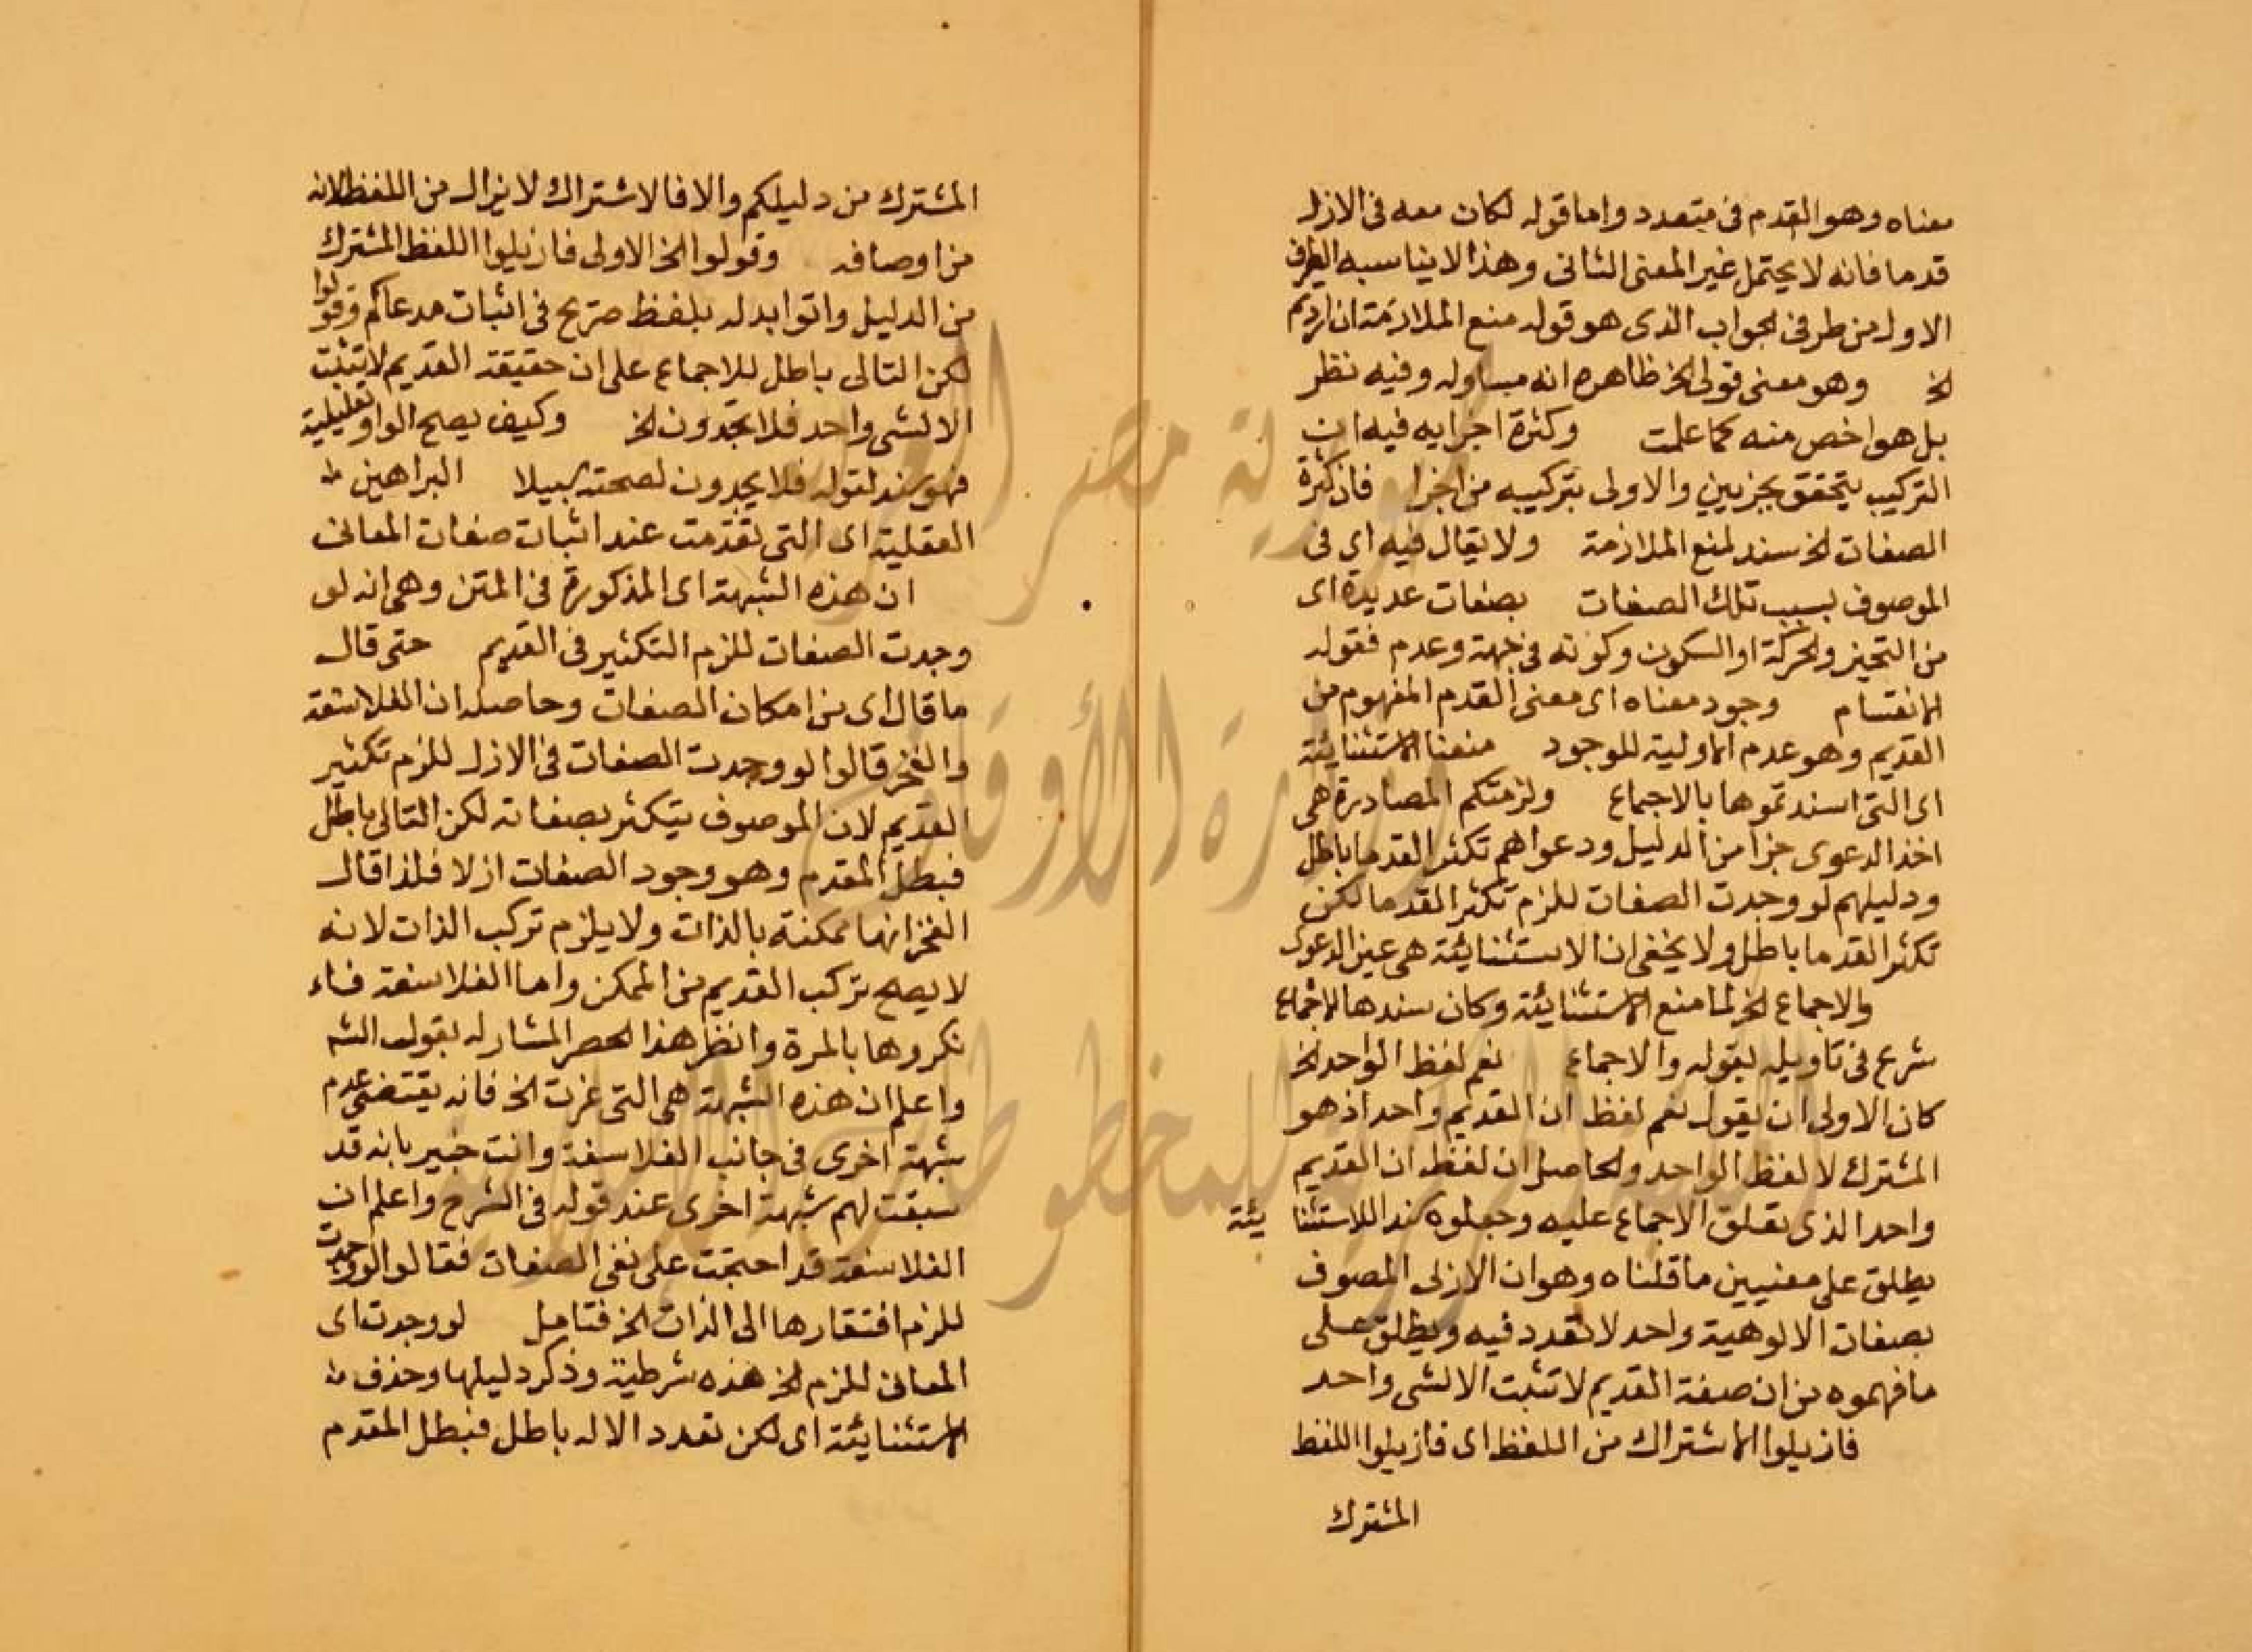 معناه وهو القدم فى متعدد واما قوله لكان معه فى الازل
قدما فانه لا يحتمل غير المعنى الثانى وهذا لا يناسبه الطرف
الاول من طرفى الجواب الذى هو قوله منع الملازمة ان اردتم
الخ وهو معنى قولى الخ ظاهره انه مساو له وفيه نظر
بل هو اخص منه كما علمت وكثرة اجزايه فيه ان
التركيب يتحقق بجزيين والاولى بتركيبه من اجزا فان كثرة
الصفات الخ سند لمنع الملازمة ولا يقال فيه اي فى
الموصوف بسبب تلك الصفات بصفات عديدة اى
من التحيز والحركة او السكون وكونه فى جهة وعدم فقوله
الانقسام وجود معناه اى معنى القدم المفهوم من
القديم وهو عدم الاولية للوجود منعنا الاستثنايئة
اى التى اسندتموها بالاجماع ولزمتكم المصادرة هى
اخذ الدعوى جزا من الدليل ودعواهم تكثر القدما باطل
ودليلهم لو وجدت الصفات للزم تكثر القدما لكن
تكثر القدما باطل ولا يخفى ان الاستثنايئة هى عين الدعوى
والاجماع الخ لما منع الاستثنايئة وكان سندها الاجماع
شرع فى تاويله بقوله والاجماع نعم لفظ الواحد الخ
كان الاولى ان يقول نعم لفظ ان القديم واحد اذ هو
المشترك لا لفظ الواحد والحاصل ان لفظ ان القديم
واحد الذى تعلق الاجماع عليه وجعلوه سندا للاستثنا يئة
يطلق على معنيين ما قلناه وهو ان الازلى الموصوف
بصفات الالوهية واحد لا تعدد فيه ويطلق على
ما فهموه من ان صفة القديم لا تثبت الا لشى واحد
فازيلوا الاشتراك من اللفظ اى فازيلوا اللفظ
المشترك
المشترك من دليلكم والا فالاشتراك لا يزال من اللفظ لانه
من اوصافه وقولوا الخ الاولى فازيلوا اللفظ المشترك
من الدليل واتوا بدله بلفظ صريح فى اثبات مدعاكم وقولوا
لكن التالى باطل للاجماع على ان حقيقة القديم لا تثبت
الا لشى واحد فلا تجدون الخ وكيف يصح الواو تعليلية
فهو سند لقوله فلا يجدون لصحته سبيلا البراهين
العقلية اى التى تقدمت عند اثبات صفات المعانى
ان هذه الشبهة اى المذكورة فى المتن وهى انه لو
وجدت الصفات للزم التكثير فى القديم حتى قال
ما قال اى من امكان الصفات وحاصله ان الفلاسفة
والفخر قالوا لو وجدت الصفات فى الازل للزم تكثير
القديم لان الموصوف يتكثر بصفاته لكن التالى باطل
فبطل المقدم وهو وجود الصفات ازلا فلذا قال
الفخر انها ممكنة بالذات ولا يلزم تركب الذات لانه
لا يصح تركب القديم من الممكن واما الفلاسفة فاء
نكروها بالمرة وانظر هذا الحصر المشار له بقول الشم
واعلم ان هذه الشبهة هى التى غرت الخ فانه يقتضى عدم
شبهة اخرى فى جانب الفلاسفة وانت خبير بانه قد
سبقت لهم شبهة اخرى عند قوله فى الشرح واعلم ان
الفلاسفة قد احتجت على نفى الصفات فقالوا لو وجدت
للزم افتقارها الى الذات الخ فتامل لو وجدت اى
المعانى للزم الخ هذه شرطية وذكر دليلها وحذف
الاستثنايئة اى لكن تعدد الاله باطل فبطل المقدم